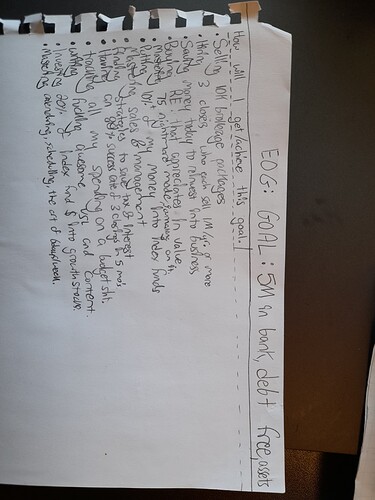 EOG: GOAL: 5M in bank, debt free, assets
How will I get/achieve this goal!
• Selling 10K brokerage packages
• Hiring 3 closers who each sell 1M/yr. or more
• Saving money today to reinvest into business
• Running RE! that appreciates in value
• Mastering
• Putting 10% of my money into index funds
• Mastering sales & management
• Finding strategies to save tax & interest
• Training an 80% success rate 3 closers in 5 mo's
• Tracking all my spending on a budget sht.
• Writing fucking awesome VSL and content.
• Investing 20% of index fund $ into growth stocks.
• Mastering calendering, scheduling, the art of deep work.